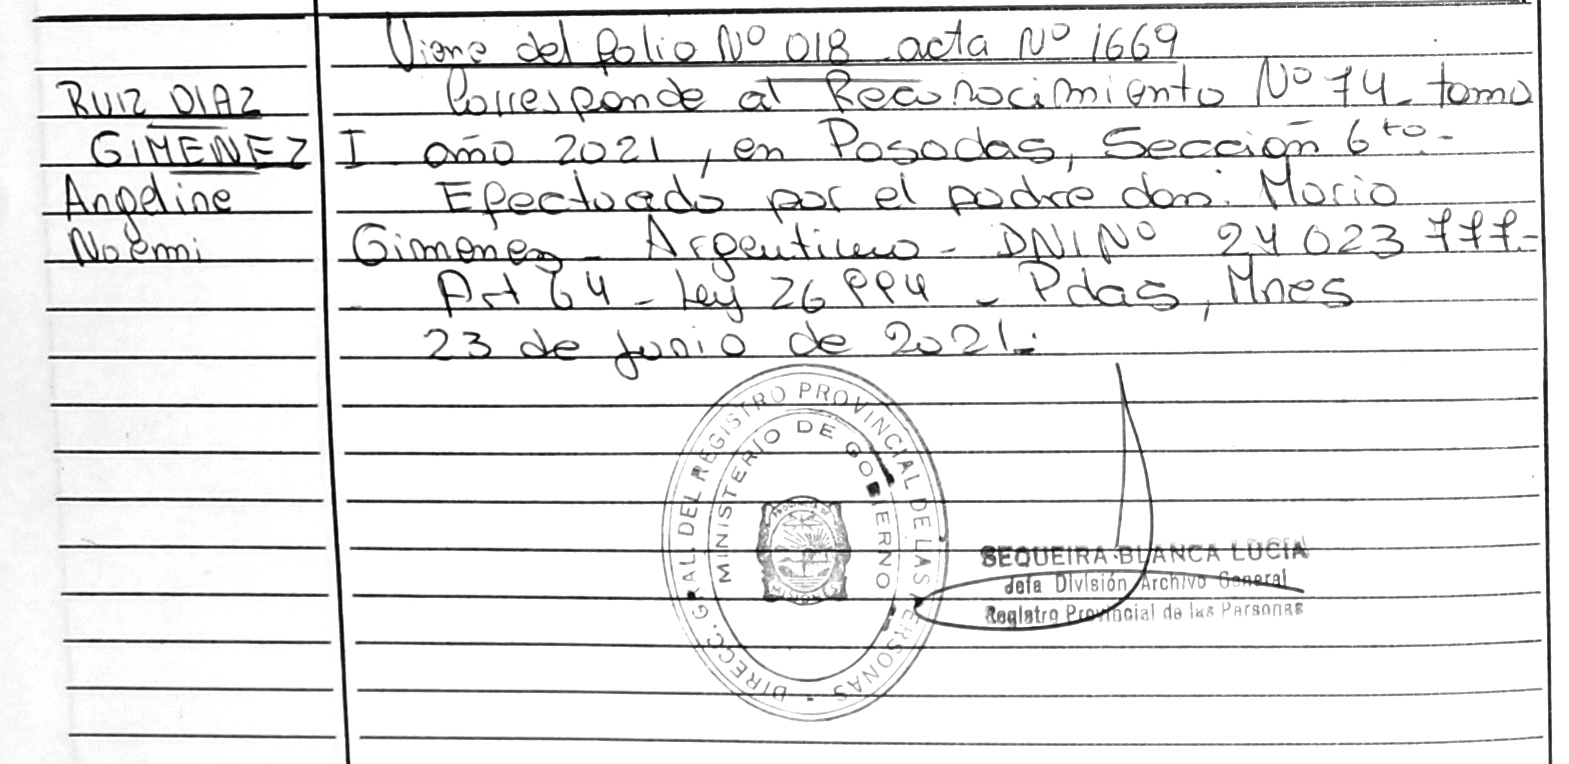 Viene del folio Nº 018 acta Nº 1669
RUIZ DIAZ
GIMENEZ
Angeline
Noemi
Corresponde al Reconocimiento Nº 74 - tomo
I año 2021, en Posadas, Sección 6to.-
Efectuado por el padre don: Mario
Gimenez - Argentino - DNI Nº 24 023 777.-
Art 64 - Ley 26994 - Pdas, Mnes
23 de junio de 2021.-
DIRECC. GRAL DEL REGISTRO PROVINCIAL DE LAS PERSONAS -
MINISTERIO DE GOBIERNO
SEQUEIRA BLANCA LUCIA
Jefa División Archivo General
Registro Provincial de las Personas